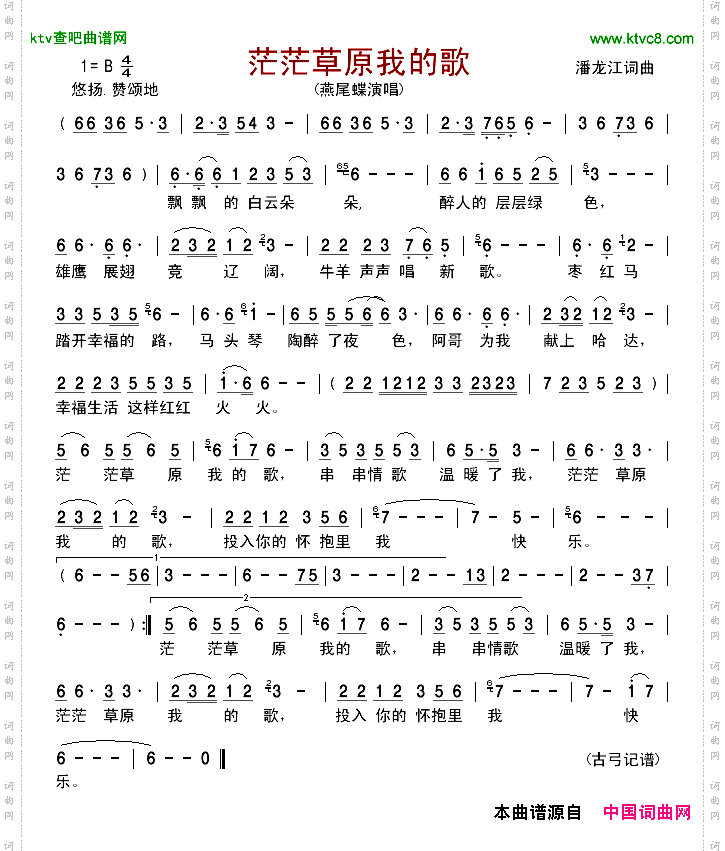 ktv查吧曲谱网
www.ktvc8.com
茫茫草原我的歌
1=B 4/4
潘龙江词曲
悠扬.赞颂地
(燕尾蝶演唱)
( 66 36 5·3 | 2·3 54 3 - | 66 36 5·3 | 2·3 765 6 - | 3 6 73 6 |
3 6 73 6 ) | 6·6 6 1 2 3 5 3 | 65 6 - - - | 6 6 i 6 5 2 5 | 5 3 - - - |
飘 飘 的 白云朵 朵, 醉人的 层层绿 色,
6 6· 6 6· | 2 3 2 1 2 2 3 - | 2 2 2 3 7 6 | 5 6 - - - | 6 6· 1 2 - |
雄鹰 展翅 竞 辽 阔, 牛羊 声声 唱 新 歌。 枣 红 马
3 3 5 3 5 5 6 - | 6·6 6 i - | 6 5 5 5 6 6 3 | 6 6· 6 6· | 2 3 2 1 2 2 3 - |
踏开幸福的 路, 马 头 琴 陶醉 了夜 色, 阿哥 为我 献上 哈 达,
2 2 2 3 5 5 3 5 | i·6 6 - - | ( 2 2 1212 3 3 2323 | 7 2 3 5 2 3 ) |
幸福生活 这样红红 火 火。
5 6 5 5 6 5 | 5 6 i 7 6 - | 3 5 3 5 5 3 | 6 5·5 3 - | 6 6· 3 3· |
茫 茫草 原 我 的 歌, 串 串情 歌 温 暖 了 我, 茫茫 草原
2 3 2 1 2 2 3 - | 2 2 1 2 3 5 6 | 6 7 - - - | 7 - 5 - | 5 6 - - - |
我 的 歌, 投入你的 怀 抱里 我 快 乐。
1
( 6 - - 5 6 | 3 - - - | 6 - - 7 5 | 3 - - - | 2 - - 1 3 | 2 - - - | 2 - - 3 7 |
2
6 - - - ) :‖ 5 6 5 5 6 5 | 5 6 i 7 6 - | 3 5 3 5 5 3 | 6 5·5 3 - |
茫 茫草 原 我的 歌, 串 串情歌 温暖 了 我,
6 6· 3 3· | 2 3 2 1 2 2 3 - | 2 2 1 2 3 5 6 | 6 7 - - - | 7 - i 7 |
茫茫 草原 我 的 歌, 投入 你的 怀抱里 我 快
6 - - - | 6 - - 0 ‖
(古弓记谱)
乐。
本曲谱源自 中国词曲网
词曲网
词曲网